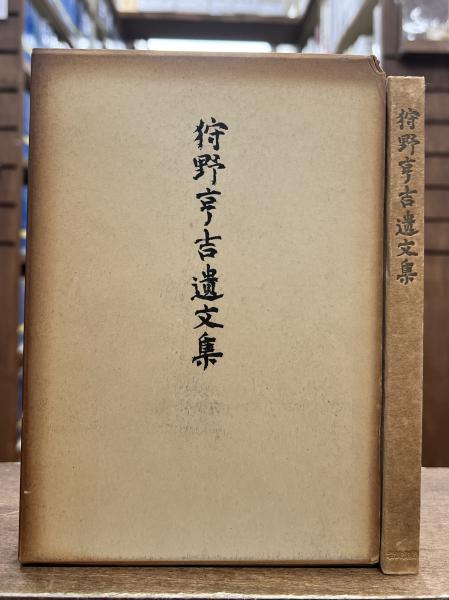 狩野亨吉遺文集
狩野亨吉遺文集